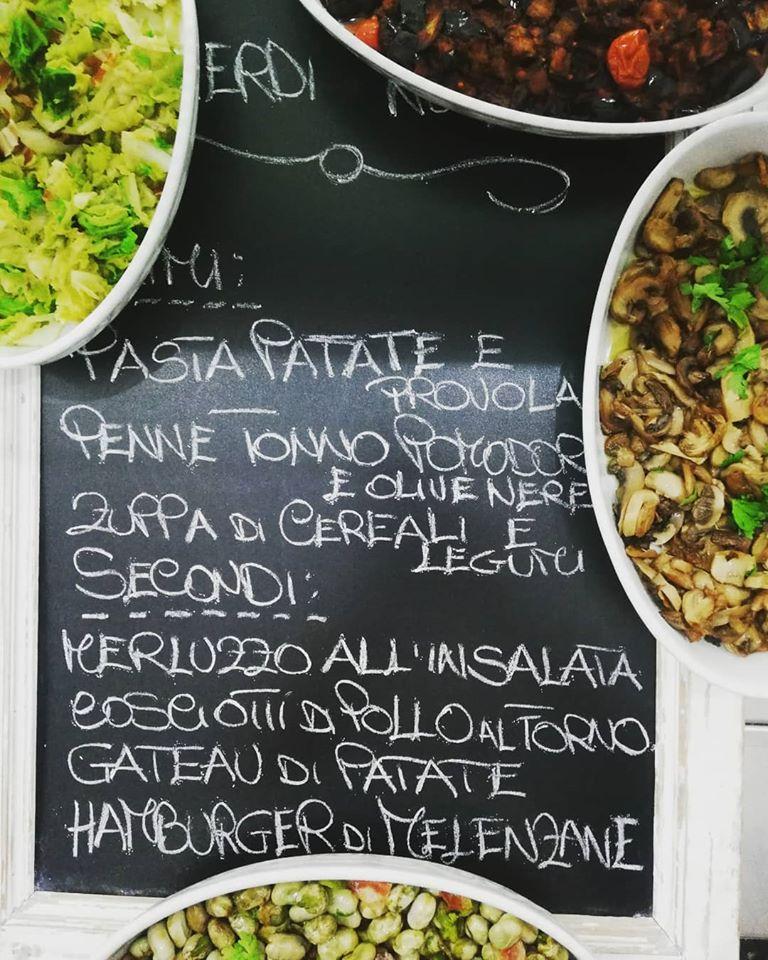 ERDI
PASTA PATATE E
PROVOLA
PENNE TONNO POMODOR
E OLIVE NERE
ZUPPA DI CEREALI E
LEGUMI
SECONDI:
MERLUZZO ALL'INSALATA
COSCIOTTI DI POLLO AL FORNO
GATEAU DI PATATE
HAMBURGER DI MELENZANE